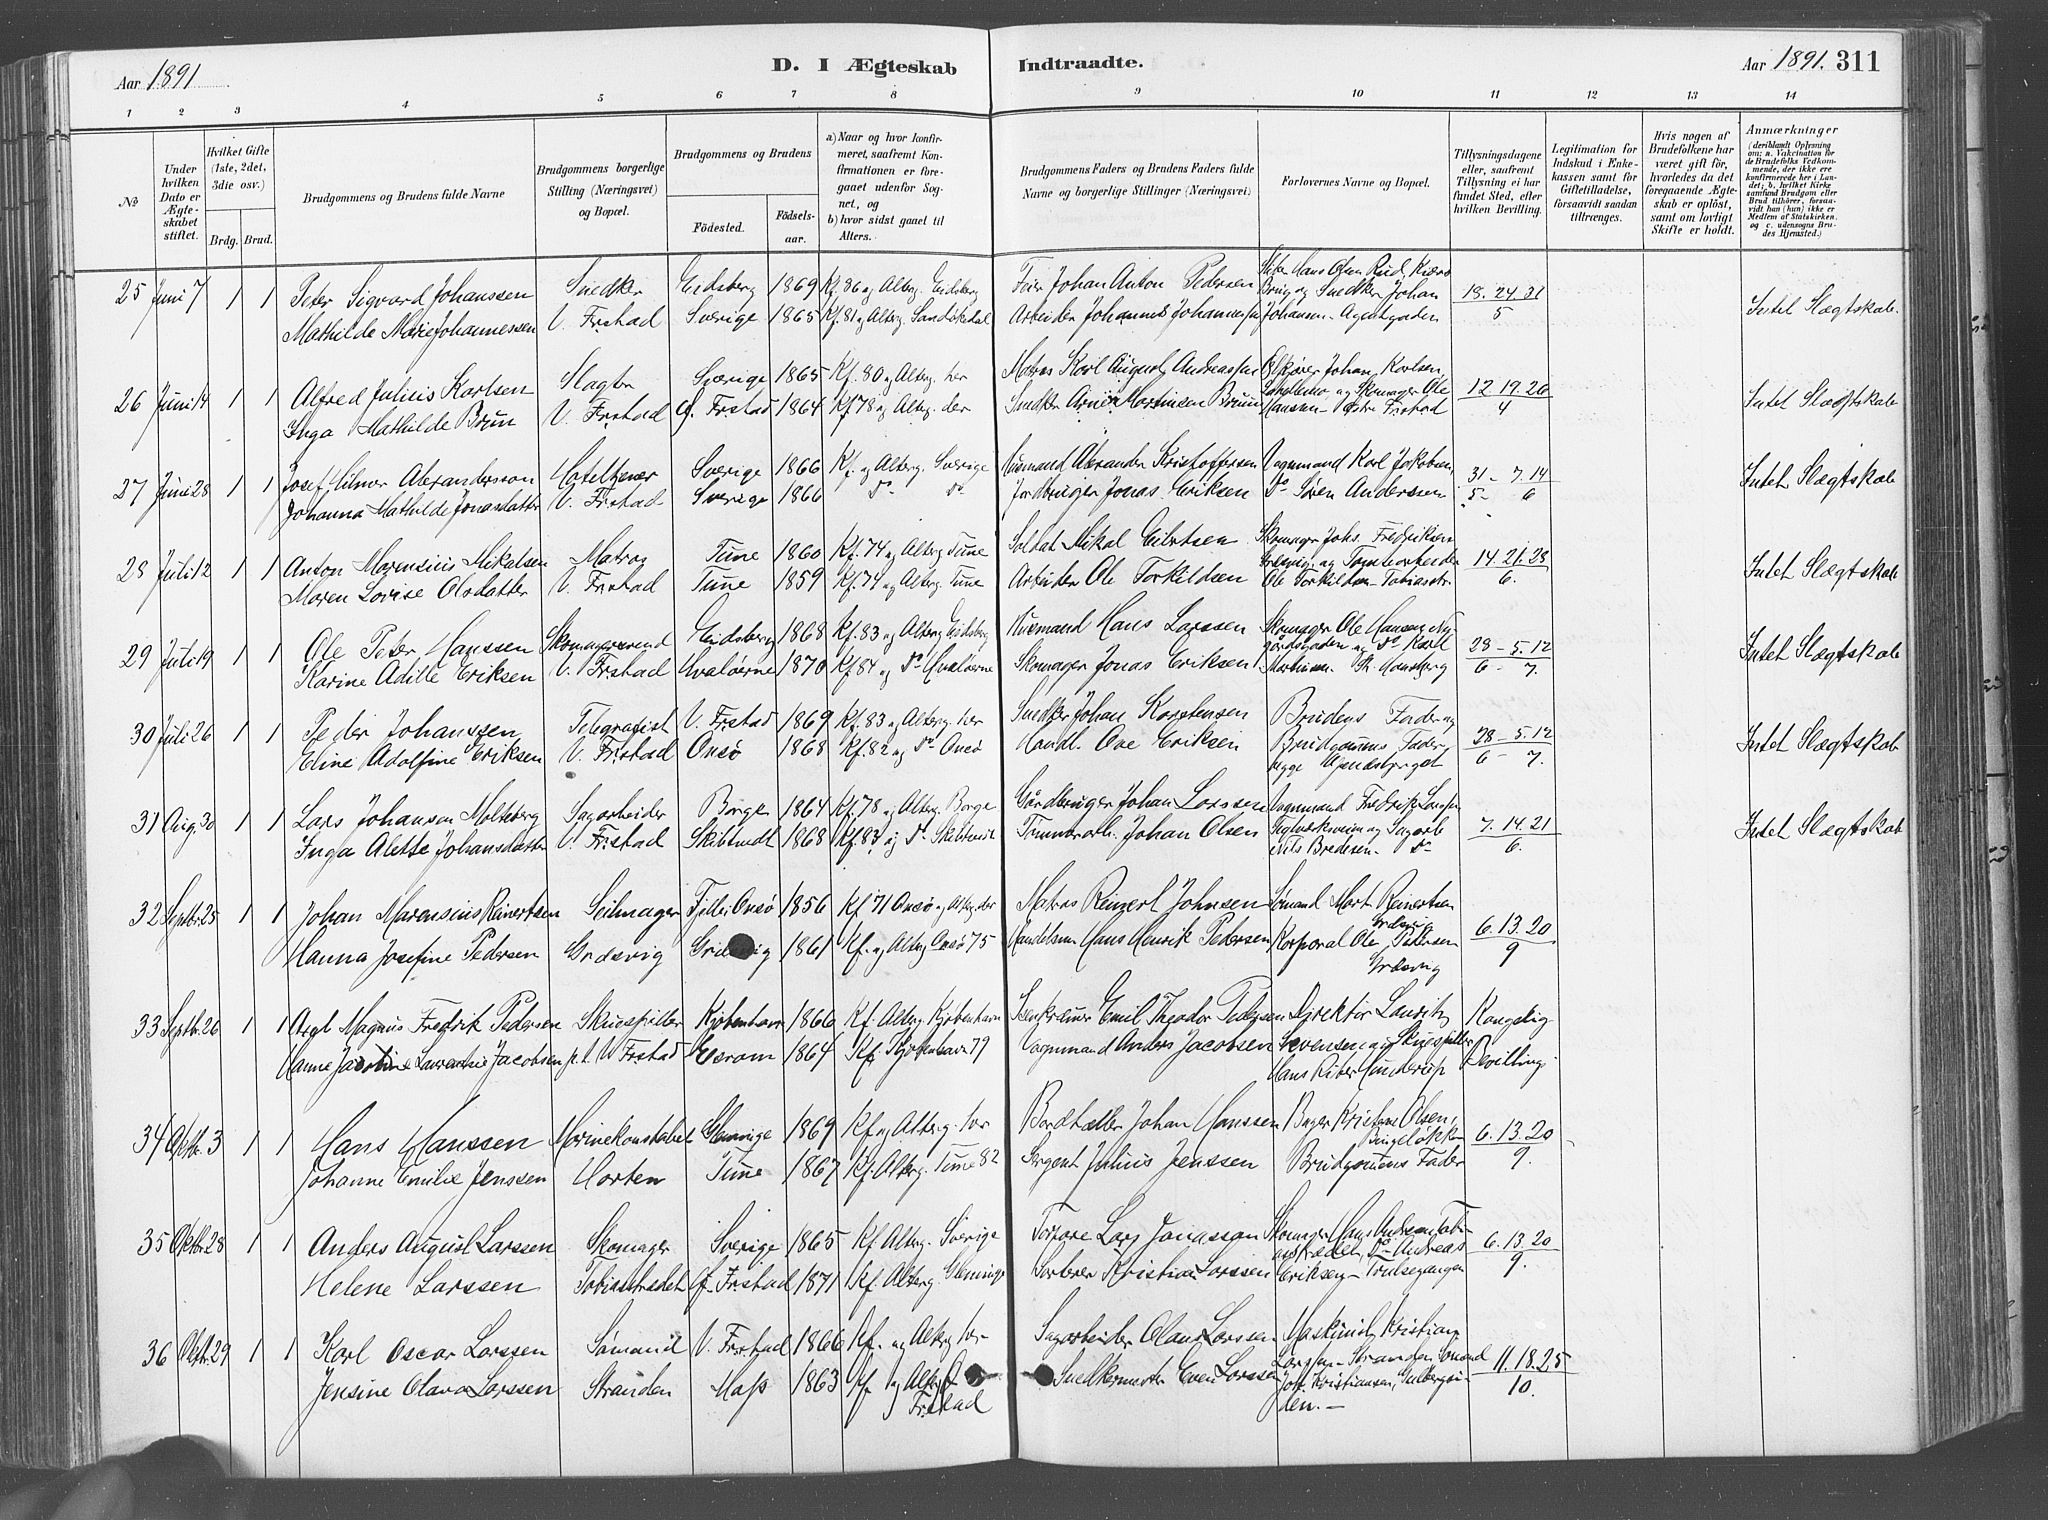 Aar 1891
D. I Ægteskab
Indtraadte.
Aar 1891. 311
1 2 3 4 5 6 7 8 9 10 11 12 13 14
№
Under hvilken Dato er Ægteskabet stiftet.
Hvilket Gifte (1ste, 2det, 3die osv.)
Brdg. Brud.
Brudgommens og Brudens fulde Navne
Brudgommens borgerlige Stilling (Næringsvei) og Bopæl.
Brudgommens og Brudens
Födested.
Födselsaar.
a) Naar og hvor konfirmeret, saafremt Konfirmationen er foregaaet udenfor Sognet, og
b) hvor sidst gaaet til Alters.
Brudgommens Faders og Brudens Faders fulde Navne og borgerlige Stillinger (Næringsvei)
Forlovernes Navne og Bopæl.
Tillysningsdagene eller, saafremt Tillysning ei har fundet Sted, efter hvilken Bevilling.
Legitimation for Indskud i Enkekassen samt for Giftetilladelse, forsaavidt sandan tiltrænges.
Hvis nogen af Brudefolkene har været gift för, hvorledes da det foregaaende Ægteskab er oplöst, samt om lovligt Skifte er holdt.
Anmærkninger (deriblandt Oplysning om: a. Vakcination for de Brudefolks Vedkommende, der ikke ere konfirmerede her i Landet; b. hvilket Kirkesamfund Brudgom eller Brud tilhörer, forsaavidt han (hun) ikke er Medlem af Statskirken. og c. udensogns Brudes Hjemsted.)
25 Juni 7 1 1 Peter Sigvard Johanssen Snedker Eidsberg 1869 Kf. 86 og Alterg. Eidsberg Feier Johan Anton Pedersen Hans Olsen Rud, Kiærs 18. 24. 31
Mathilde Marie Johannessen V. Frstad Sverige 1865 Kf. 81 og Alterg. Arbeider Johannes Johannessen Brug og Snedker Johan Johansen - Agentgaden 5 Intet Slægtskab.
26 Juni 14 1 1 Alfred Julius Karlsen Slagter Sverige 1865 Kf. 80 og Alterg. her Matros Karl August Andreassen Johan Karlsen, 12 19. 26
Inga Mathilde Brun V. Frstad G. Frstad 1864 Kf 78 og Alterg. der Snedker Martinsen Brun og Skomager Ole Hansen - Frstad 4 Intet Slægtskab
27 Juni 28 1 1 Josef Hilmer Alexandersson Hoteltjener Sverige 1866 Kf. og Alterg. Sverige Husmand Alexander Kristoffersen Vognmand Karl Jakobsen 31 - 7. 14
Johanna Mathilde Jonasdatter V. Frstad Sverige 1866 Do Do Jordbruger Jonas Eriksen Do Søren Anderssen 5 - 6 Intet Slægtskab
28 Juli 12 1 1 Anton Marensius Mikalsen Matros Tune 1860 Kf. 74 og Alterg Tune Soldat Mikal Eilertsen Skomager Johs. Fredriksen 14. 21. 28
Maren Lovise Olsdatter V. Frstad Tune 1859 Kf 74 og Alterg. Tune Arbeider Ole Torkildsen Gresvig og Tomtearbeider Ole Torkildsen - Tobiasstr. 6. Intet Slægtskab
29 Juli 19 1 1 Ole Peter Hanssen Skomagersvend Eidsberg 1868 Kf. 83 og Alterg Eidsberg Husmand Hans Larssen Skomager Ole Hansen, Ny 28 - 5. 12
Karine Adille Eriksen V. Frstad Hvaløerne 1870 Kf 84 og Do Hvaløerne Skomager Jonas Eriksen gårdsgaden og Do Karl Martinsen 6 - 7. Intet Slægtskab
30 Juli 26 1 1 Peder Johanssen Telegrafist V. Frstad 1869 Kf. 83 og Alterg. her Snedker Johan Karstensen Brudens Fader og 28 - 5. 12
Eline Adolfine Eriksen V. Frstad Onsø 1868 Kf. 82 og Do Onsø Handl. Ove Eriksen Brudgommens Fader begge 6 - 7. Intet Slægtskab
31 Aug. 30 1 1 Lars Johansen Molteberg Sagarbeider Borge 1864 Kf. 78 og Alterg. Borge Gårdbruger Johan Larssen Vognmand Fredrik Larssen 7. 14. 21
Inga Alette Johansdatter V. Frstad Skibtvedt 1868 Kf. 83 og Do Skibtvedt Tømmerarb. Johan Olsen Teglværksveien og Sagarb Nils Bredesen - Do 6. Intet Slægtskab
32 Septbr. 25 1 1 Johan Marensius Reinertsen Seilmager Onsø 1856 Kf 71 Onsø og Alterg. der Matros Reinert Johnsen Sømand Mart. Reinertsen Gresvig 6. 13. 20
Hanna Josefine Pedersen Gresvig 1861 Kf. og Alterg Onsø 75 Handelsm Hans Henrik Pedersen Korporal Ole Petersen Gresvig 9
33 Septbr. 26 1 1 Axel Magnus Fredrik Pedersen Skuespiller Kjøbenhavn 1866 Kf. Alterg. Kjøbenhavn Isenkræmmer Emil Theodor Pedersen Direktør Lauritz Kongelig
Hanne Jacobine Laurentsie Jacobsen p.t. V Frstad Esrom 1864 Kf. Kjøbenhavn 79 Vognmand Anders Jacobsen Sevensen og Skuespiller Hans Riber Hunderup Bevilling
34 Oktbr. 3 1 1 Hans Hanssen Marinekonstabel Glemmige 1869 Kf og Alterg. her Bordtæller Johan Hanssen Bager Kristian Olsen, 6. 13. 20
Johanne Emilie Jenssen Horten Tune 1867 Kf. Alterg. Tune 82 Sergent Julius Jenssen Brudgommens Fader 9.
35 Oktbr 28 1 1 Anders August Larssen Skomager Sverige 1865 Kf. Alterg. Sverige Torpare Lars Jonasson Skomager Hans Andersen Tobi- 6. 13. 20
Helene Larssen Tobiasstrædet G. Frstad 1871 Kf Alterg. Glemmige Kristian Larssen asstrædet, Do Andreas Eriksen - Trulsegangen 9.
36 Oktbr. 29 1 1 Karl Oscar Larssen Sømand V. Frstad 1866 Kf. og Alterg her Sagarbeider Olaus Larssen Maskinist Kristian 11. 18. 25
Jensine Olava Larssen Stranden Moss 1863 Kf og Alterg Frstad Snedkermester Even Larssen Larssen - Stranden, Sømand Joh. Kristiansen, 10.
den. -